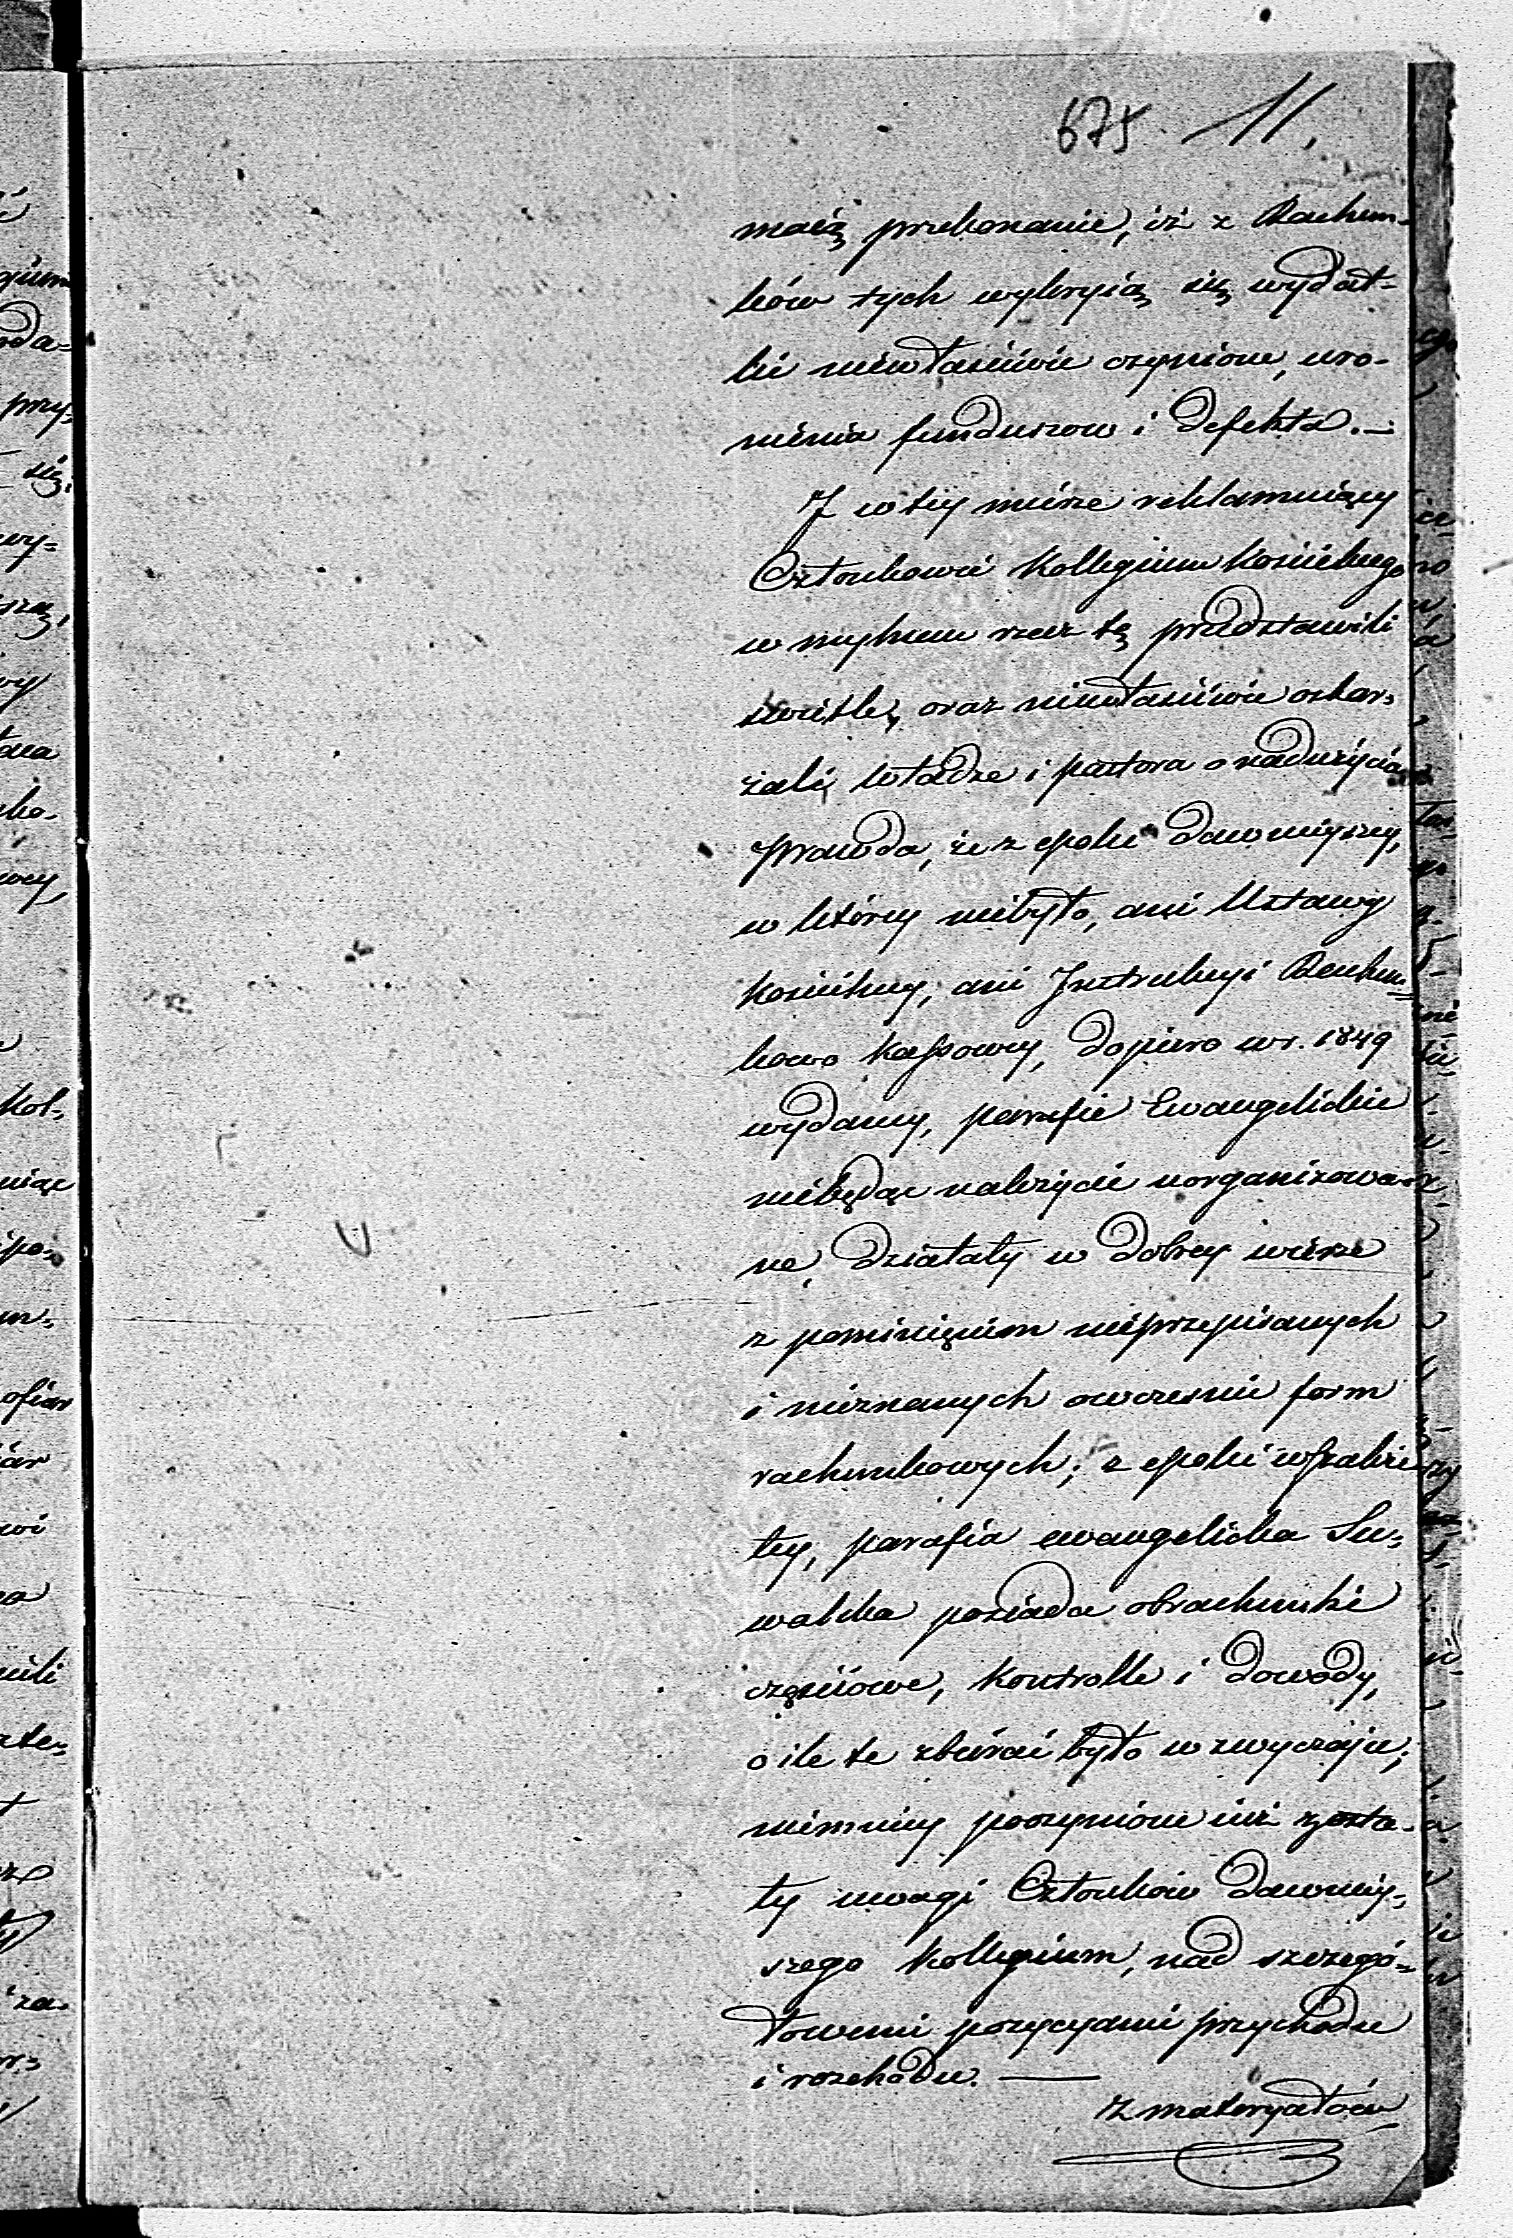 675. 11.
maią przekonanie, iż z Rachun-
ków tych wykryią się wydat-
ki niewłaściwie czynione, uro-
nienia funduszow i defekta. —
I w tey mierze reklamuiący
Członkowie Kollegium Kościelnego
w mylnem rzecz tę przedstawili
świetle, oraz niewłaściwie oskar-
żali władze i pastora o nadużycia
prawda, że z epoki dawnieyszey,
w którey niebyło, ani Ustawy
Kościelney, ani Instrukcyi Rachun-
kowo Kassowey, dopiero w r. 1849
wydaney, parafie Ewangelickie
niebędąc należycie uorganizowa-
ne, działały w dobrey wierze
z pominięciem nieprzepisanych
i nieznanych owcześnie form
rachunkowych; z epoki wszakże
tey, parafia ewangelicka Su-
walska posiada obrachunki
częściowe, kontrolle i dowody,
o ile te zbierać było w zwyczaju;
niemniey poczynione iuż zosta-
ły uwagi Członków dawniey-
szego Kollegium, nad szczegó-
łowemi pozycyami przychodu
i rozchodu. —
Z materyałów